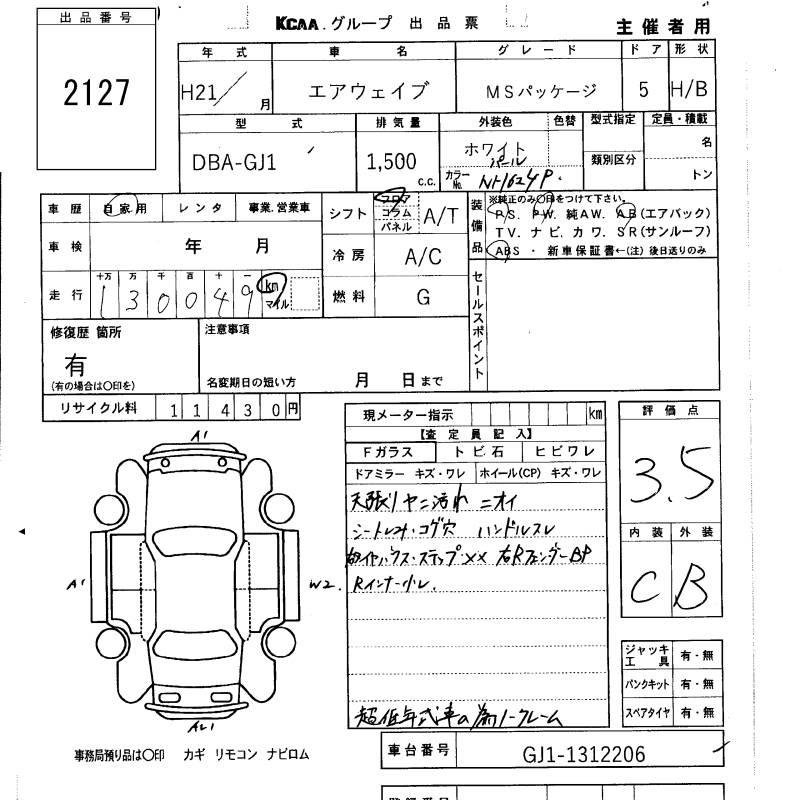 出品番号
2127
KCAA.グループ 出品票
主催者用
年式 車名 グレード ドア 形状
H21/ 月 エアウェイブ MSパッケージ 5 H/B
型式 排気量 外装色 色替 型式指定 定員・積載
DBA-GJ1 1,500 c.c. ホワイトパール 類別区分 名
カラーNo. NH624P. トン
車歴 自家用 レンタ 事業.営業車
シフト フロア コラム パネル A/T
装備品 ※純正のみ〇印をつけて下さい。
P.S. P.W. 純AW. AB(エアバック)
TV. ナビ. カワ. SR(サンルーフ)
ABS ・ 新車保証書←(注)後日送りのみ
車検 年 月
冷房 A/C
走行 十万 万 千 百 十 一
130049 km マイル
燃料 G
セールスポイント
修復歴 箇所
有
(有の場合は〇印を)
注意事項
名変期日の短い方 月 日まで
リサイクル料 11430円
現メーター指示 km
【査定員記入】
Fガラス トビ石 ヒビワレ
ドアミラー キズ・ワレ ホイール(CP) キズ・ワレ
天張リヤニ汚れ ニオイ
シートスレ・コゲ穴 ハンドルスレ
タイヤハウス・ステップ×× 右RフェンダーBP
Rインナー小レ.
超低年式車の為ノークレーム
評価点
3.5
内装 外装
C B
ジャッキ工具 有・無
パンクキット 有・無
スペアタイヤ 有・無
A1
A1
W2.
AL1
事務局預り品は〇印 カギ リモコン ナビロム
車台番号 GJ1-1312206
登録番号